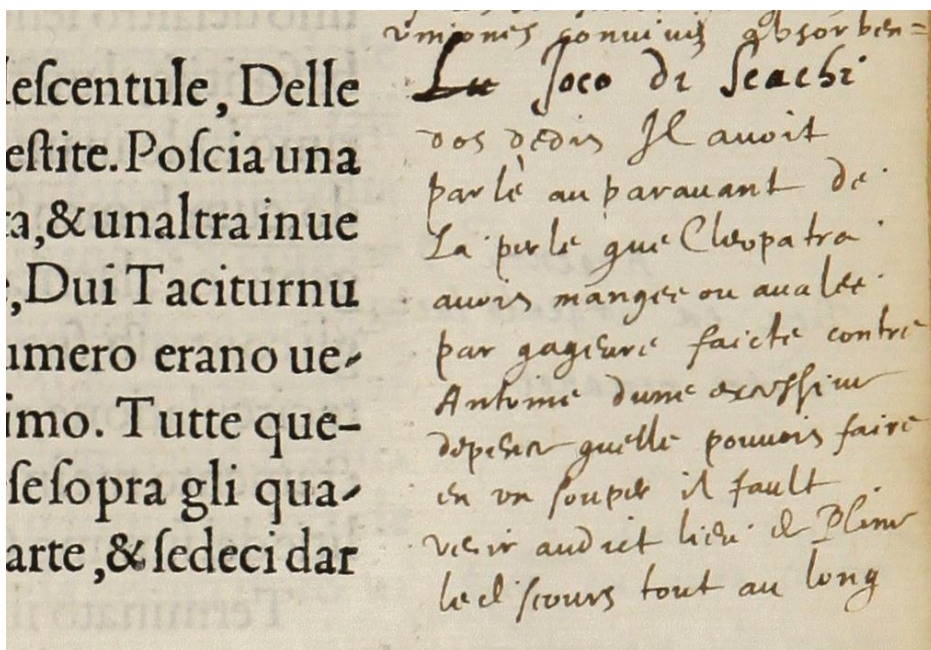 lescentule, Delle
estite. Poscia una
ta, & unaltra inue
e, Dui Taciturnu
umero erano ue-
imo. Tutte que-
se sopra gli qua-
arte, & sedeci dar
vniones conuiuijs absorben=
Lu Joco di Scachi
dos dedis Il auoit
parlè au parauant de
La perle que Cleopatra
auois mangee ou aualee
par gageure faicte contre
Antoine dune excessiue
depense quelle pouuois faire
en vn souper il fault
veoir audict lieu de Pline
le discours tout au long